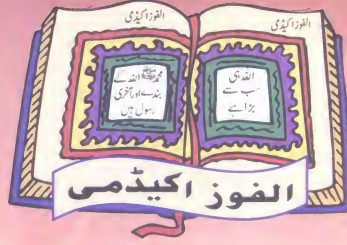 الفوز اکیڈمی
الفوز اکیڈمی
اللہ ہی
سب سے
بڑا ہے
محمد ﷺ اللہ کے
بندے اور آخری
رسول ہیں
الفوز اکیڈمی